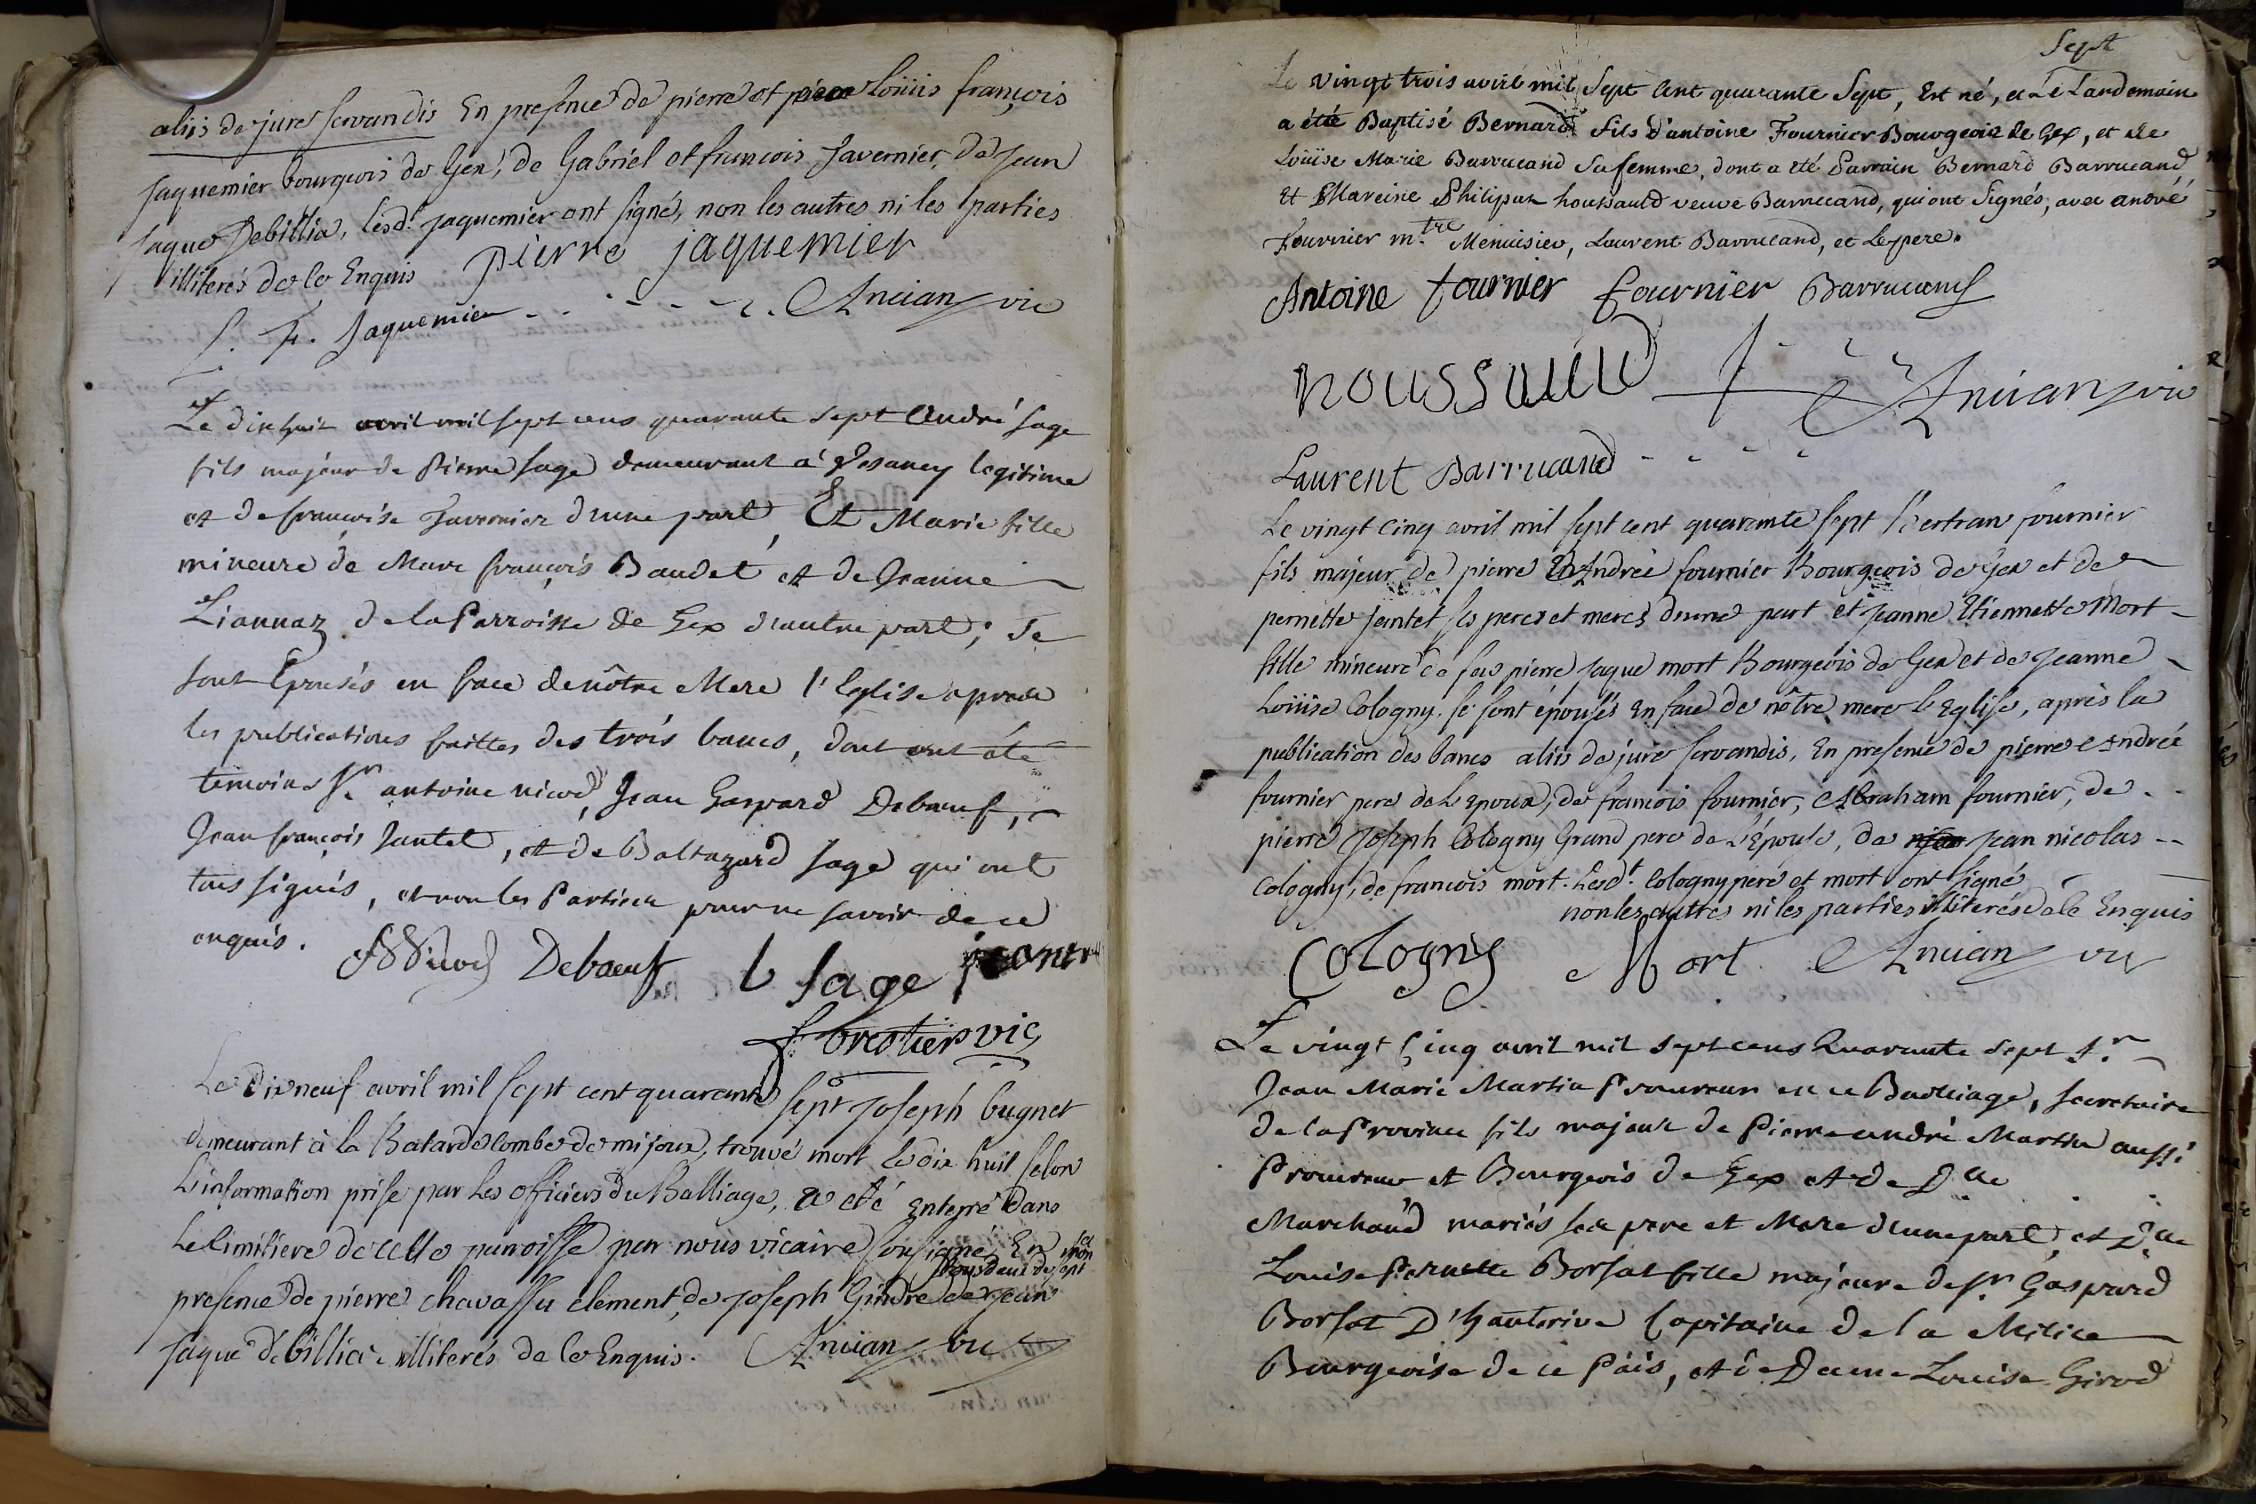 aliis de jure servandis En presence de pierre et Loüis françois
Jaquemier bourgeois de Gex, de Gabriel et francois Tavernier, de Jean
Jaque Debillia, lesd. jaquemier ont signé, non les autres ni les parties
illiterés de ce Enquis pierre jaquemier
L. F. Jaquemier Ancian vic
Le dix huit avril mil sept cens quarante sept André Sage
fils majeur de Pierre Sage demeurant à Vesancy legitime
et de francoise Tavernier d'une part, Et Marie fille
mineure de Marc françois Baudet et de Jeanne
Liannaz de la Parroisse de Gex d'autre part; Se
sont Epousés en face de nôtre Mere l'Eglise apres
les publications faittes des trois bancs, dont ont été
temoins Sr antoine nicod, Jean Gaspard Deboeuf,
Jean françois Jantet, et de Baltazard Sage qui ont
tous signés, et non les Parties pour ne savoir de ce
enquis. Nicod Deboeuf b Sage
forestier vic
Le Dix neuf avril mil sept cent quarante sept Joseph bugnet
demeurant à la Batarde combe de mijoux, trouvé mort le dix huit selon
L'information prise par Les officiers du Balliage, a eté Enterré Dans
Le Cimitiere de cette parroisse par nous vicaire sousigné, En
presence de pierre chavassu clement, de Joseph Gindre de Jean
tous deux de sept
Jaque debillia illiterés de ce Enquis. Ancian vic
Sept
Le vingt trois avril mil Sept Cent quarante Sept, Est né, et Le Landemain
a été Baptisé Bernard fils d'antoine Fournier Bourgeois de Gex, et de
Loüise Marie Barrucand Sa femme, dont a été Parrain Bernard Barrucand
et Mareine Philipine houssauld veuve Barrucand, qui ont Signés, avec andré
Fournier m.tre Menuisier, Laurent Barrucand, et Le pere.
Antoine fournier fournier Barrucand
houssauld Ancian vic
Laurent Barrucand
Le vingt cinq avril mil sept cent quarante sept Bertran fournier
fils majeur de pierre Andrée fournier Bourgeois de Gex et de
pernette jantet ses peres et meres d'une part et jeanne Etiennette Mort
fille mineure de feu pierre Jaque mort Bourgeois de Gex et de Jeanne
Loüise Cologny. se sont épousés en face de nôtre mere L'Eglise, après la
publication des bancs aliis de jure servandis, En presence de pierre Andrée
fournier pere de L'Epoux, de francois fournier, Abraham fournier, de
pierre Joseph Cologny Grand pere de L'Epouse, de jean nicolas
Cologny, de francois mort. Lesd.t Cologny pere et mort ont signé
non les autres ni les parties illiterés de ce Enquis
Cologny Mort Ancian vic
Le vingt Cinq avril mil sept cens Quarante sept Sr
Jean Marie Martin Procureur en ce Bailliage, secretaire
de la Province fils majeur de Pierre andré Martin aussi
Procureur et Bourgeois de Gex et de Dlle
Marchand mariés ses pere et Mere d'une part, et Dlle
Louise Pernette Borsat fille majeure de Sr Gaspard
Borsat D'hauterive Capitaine de la Milice
Bourgeoise de ce Païs, et de Dame Louise Girod